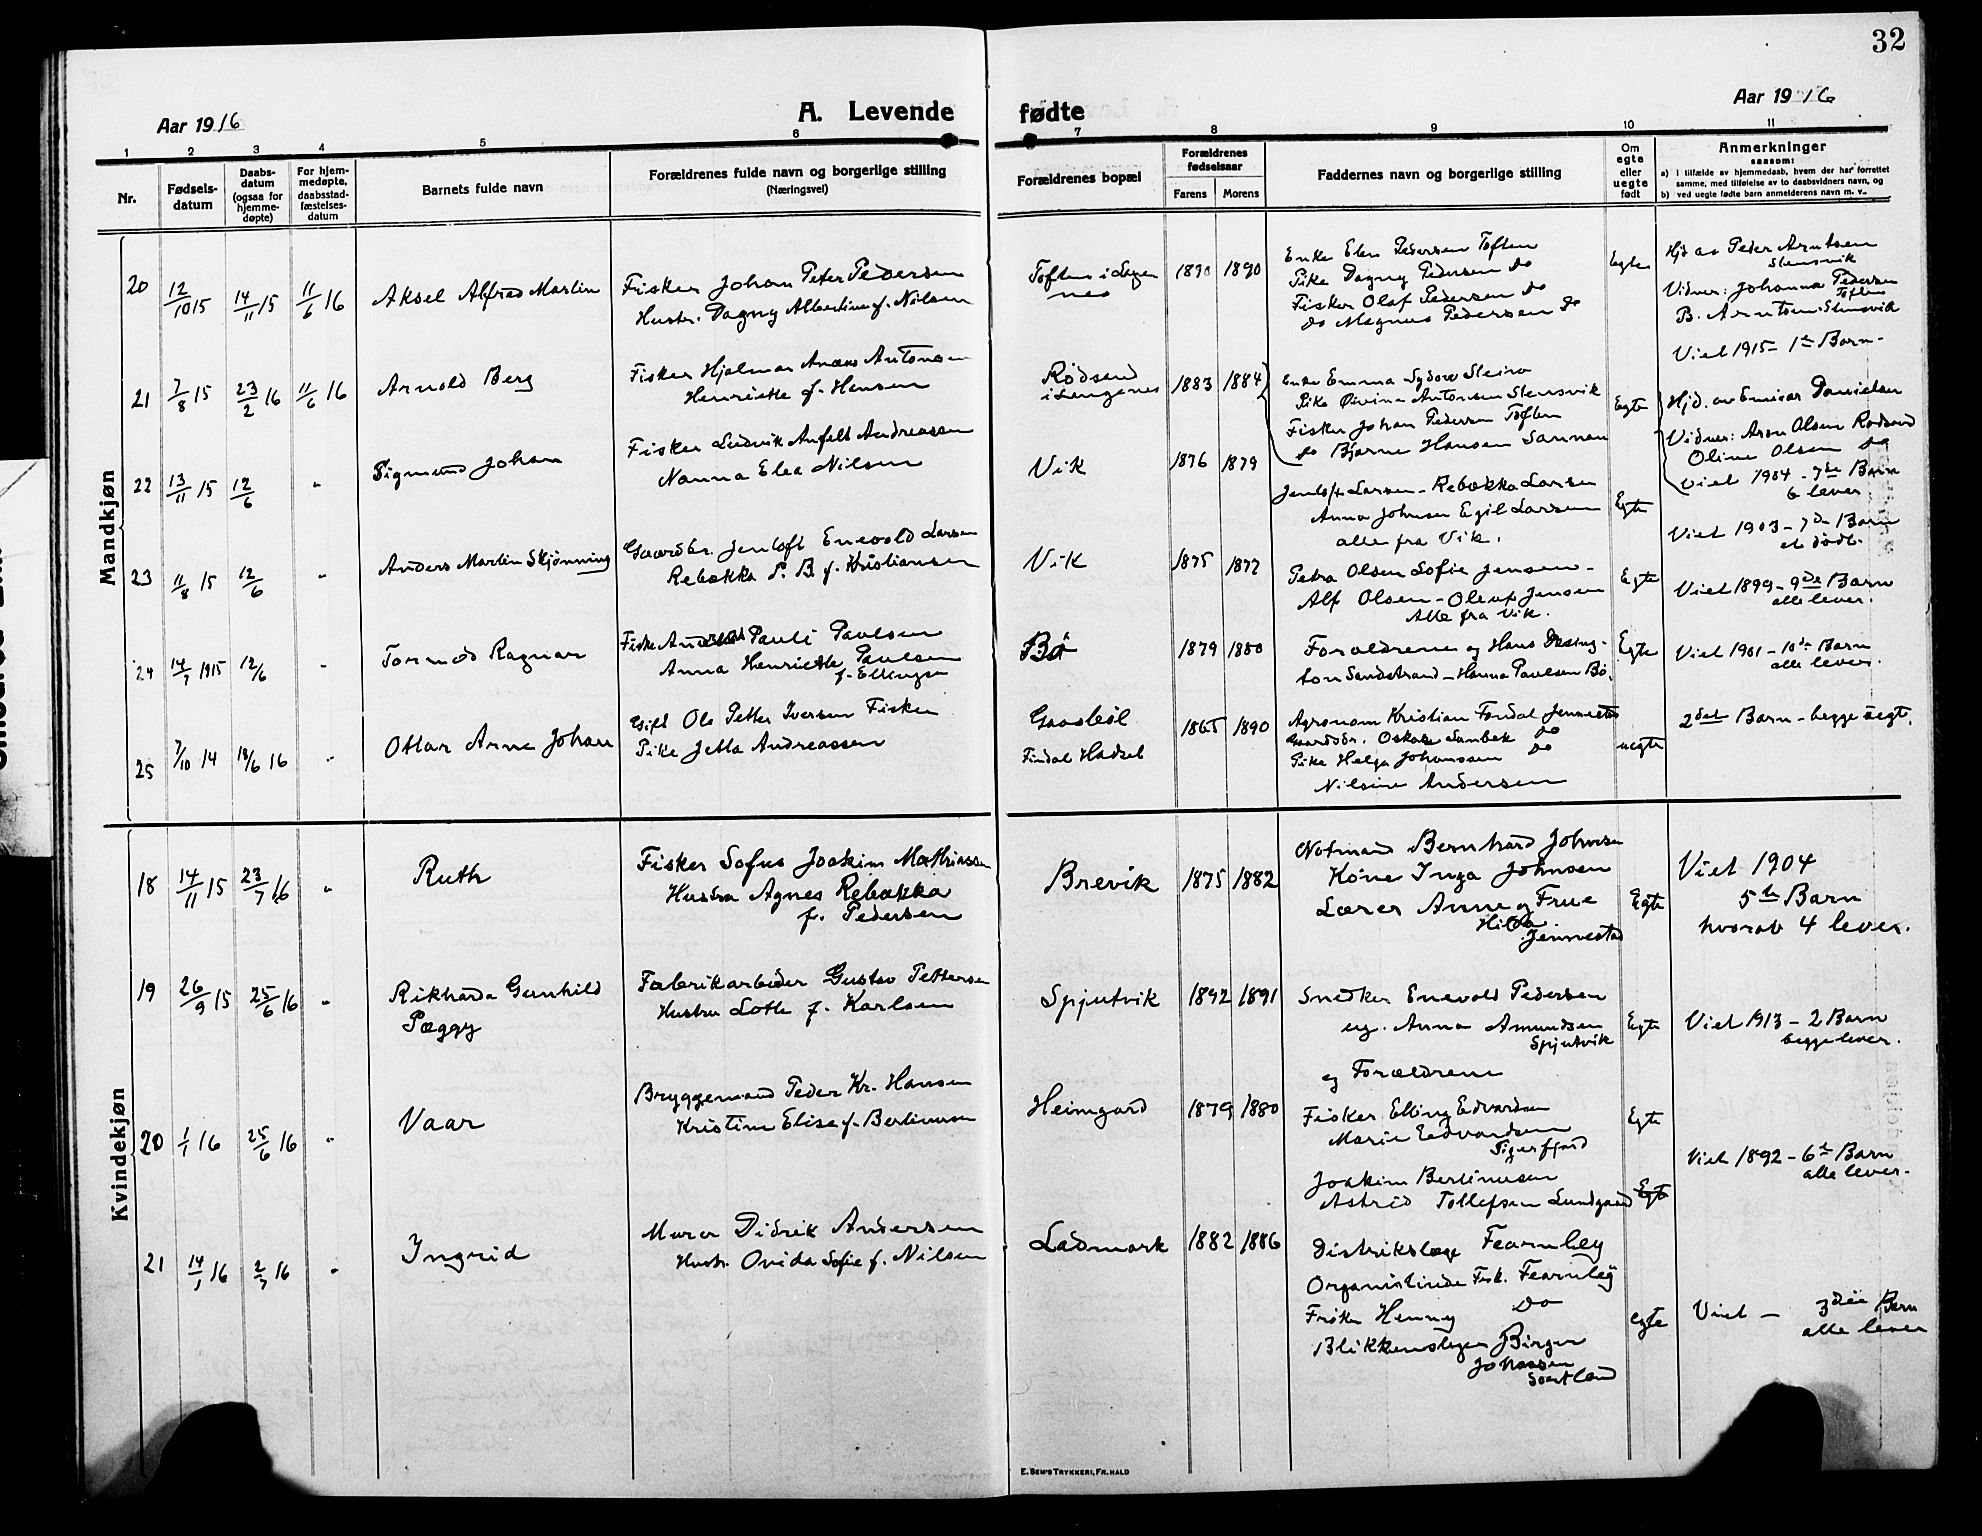 32
Aar 1916
A. Levende
fødte
Aar 1916
1 2 3 4 5 6 7 8 9 10 11
Nr.
Fødsels-
datum
Daabs-
datum
(ogsaa for
hjemme-
døpte)
For hjem-
medøpte,
daabsstad-
fæstelses-
datum
Barnets fulde navn
Forældrenes fulde navn og borgerlige stilling
(Næringsvei)
Forældrenes bopæl
Forældrenes
fødselsaar
Farens Morens
Faddernes navn og borgerlige stilling
Om
egte
eller
uegte
født
Anmerkninger
saasom:
a) i tilfælde av hjemmedaab, hvem der har forrettet
samme, med tilføielse av to daabsvidners navn, og
b) ved uegte fødte barn anmelderens navn m. v.
Mandkjøn
20 12/10 15 14/11 15 11/6 16 Aksel Alfred Martin
Fisker Johan Peter Pedersen
Hustr. Dagny Albertine f. Nilsen
Toften i Langen
nes
1890 1890
Enke Elen Pedersen Toften
Pike Dagny Pedersen Do
Fisker Olaf Pedersen Do
do Magnus Pedersen Do
Egte
Hjd av Peder Arntsen
Stensvik
Vidner: Johanna Pedersen
Toften
B. Arntsen Stensvik
Viet 1915 - 1te Barn -
21 7/8 15 23/2 16 11/6 16 Arnold Berg
Fisker Hjalmar Antonsen
Henriette f. Hansen
Rødsand
i Langenes
1883 1884
Enke Emma Steiro
Pike Øivina Antonsen Stensvik
Fisker Johan Pedersen Toften
do Bjarne Hansen Sannan
Egte
Hjd. av Danielsen
Vidner: Aron Olsen Rødsand
Oline Olsen Do
Viet 1904 - 7de Barn
6 lever
22 13/11 15 12/6 " Sigmund Johan
Fisker Ludvik Anfelt Andreassen
Nanna Elea Nilsen
Vik
1876 1879
Jentoft Larsen - Rebekka Larsen
Anna Johnsen Egil Larsen
alle fra Vik.
Egte
Viet 1903 - 7de Barn
et dødt.
23 11/8 15 12/6 " Anders Martin Skjønning
Gaardbr. Jentoft Enevold Larsen
Rebekka P. B. f. Kristiansen
Vik
1875 1877
Petra Olsen Sofie Jensen -
Alf Olsen - Oluf Jensen
Alle fra Vik.
Egte
Viet 1899 - 9de Barn
alle lever.
24 14/7 1915 12/6 " Tormod Ragnar
Fisker Pauli Paulsen
Anna Henriette Paulsen
f. Ellingsen
Bø
1879 1880
Forældrene og Hans
Sandstrand - Hanna Paulsen Bø.
Egte
Viet 1901 - 10de Barn
alle lever.
25 7/10 14 18/6 16 " Ottar Arne Johan
Gift Ole Petter Iversen Fisker
Pike Jetta Andreassen
Gaasbøl
Hadsel
1865 1890
Agronom Kristian Jennestad
Gaardbr. Oskar Do
Pike Helga Johanssen Do
Nilsine Andersen
uegte
2det Barn - begge uegt.
Kvindekjøn
18 14/11 15 23/7 16 " Ruth
Fisker Sofus Joakim Mathiassen
Hustru Agnes Rebekka
f. Pedersen
Brevik
1875 1882
Notmand Bernhard Johnsen
Kone Inga Johnsen
Lærer Anne og Frue
Hilda
Jennestad
Egte
Viet 1904
5te Barn
hvorav 4 lever.
19 26/9 15 25/6 16 " Rikharda Gunhild
Pæggy
Fabrikarbeider Gustav Pettersen
Hustru Lotte f. Karlsen
Spjutvik
1892 1891
Snedker Enevold Pedersen
ug. Anna Amundsen
Spjutvik
og Forældrene
Egte
Viet 1913 - 2 Barn
begge lever.
20 1/1 16 25/6 16 " Vaar
Bryggemand Peder Kr. Hansen
Kristine Elise f. Bertinusen
Heimgard
1879 1880
Fisker Elling Edvardsen
Marie Edvardsen
Sigerfjord
Joakim Bertinusen
Astrid Tollefsen Lundgaard
Egte
Egte
Viet 1892 - 6te Barn
alle lever.
21 14/1 16 2/7 16 " Ingrid
Murer Didrik Andersen
Hustr. Ovida Sofie f. Nilsen
Ladmark
1882 1886
Distriktslæge Fearnley
Organistinde Frk. Fearnley
Frøken Henny Do
Blikkenslager Birger
Johnsen
Sortland
egte
Viet - 3die Barn
alle lever
E. SEM'S TRYKKERI, FR.HALD